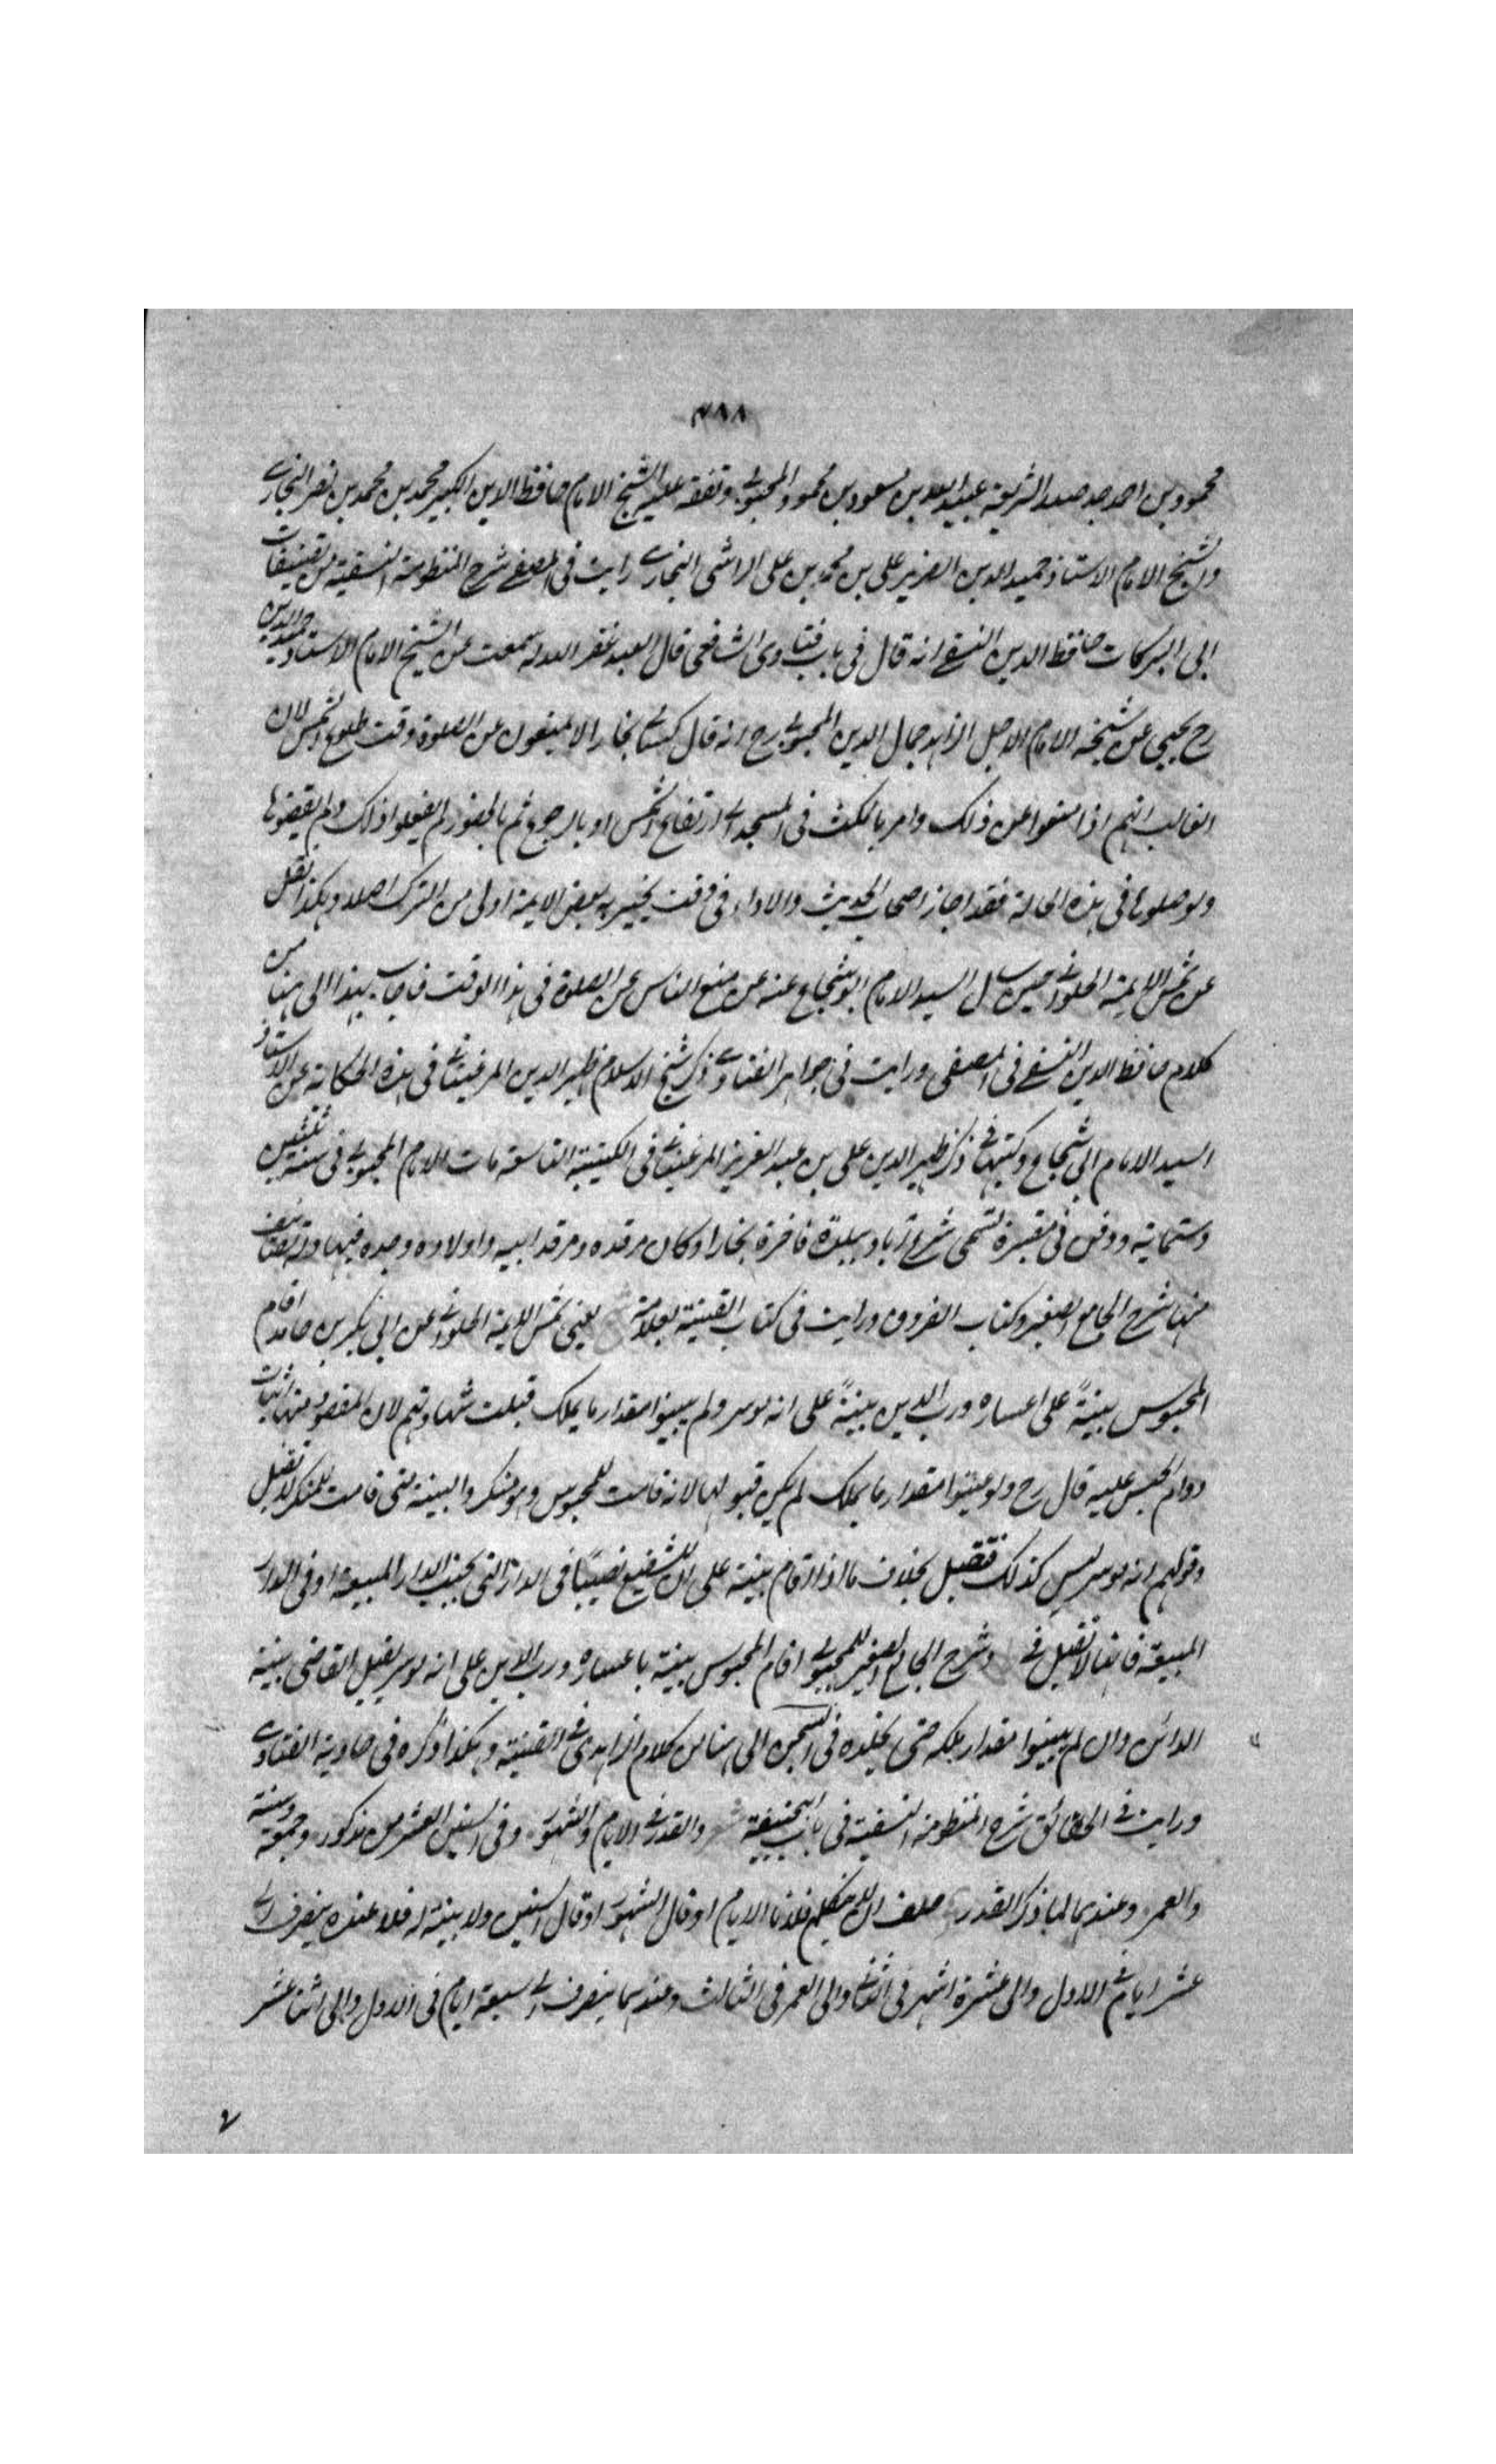 ٧٨٨
محمود بن احمد جد صدر الشريعة عبيد الله بن مسعود بن محمود المحبوبي وتفقه عليه الشيخ الامام حافظ الدين الكبير محمد بن محمد بن نصر البخاري
والشيخ الامام الاستاذ حميد الدين الضرير علي بن محمد بن علي الرامشي البخاري رايت في المصفى شرح المنظومة النسفية من تصنيفات
ابي البركات حافظ الدين النسفي انه قال في باب فتاوى الشافعي قال العبد غفر الله له سمعت عن الشيخ الامام الاستاذ حميد الدين
رح يحيي عن شيخه الامام الاجل الزاهد جمال الدين المحبوبي رح انه قال كسالى بخارا لا يمنعون عن الصلوة وقت طلوع الشمس لان
الغالب انهم اذا منعوا عن ذلك وامر بالمكث في المسجد الى ارتفاع الشمس او بالرجوع ثم بالحضور لم يفعلوا ذلك ولم يقضوها
ولو صلوها في هذه الحالة فقد اجاز اصحاب الحديث والاداء في وقت يجيز به بعض الايمة اولى من الترك اصلا وهكذا نقل
عن شمس الايمة الحلواني حين سأل السيد الامام ابو شجاع عنه عن منع الناس عن الصلوة في هذا الوقت فاجاب بهذا الى هنا من
كلام حافظ الدين النسفي في المصفى ورايت في جواهر الفتاوى ذكر شيخ الاسلام ظهير الدين المرغيناني هذه الحكاية عن الاستاذ
السيد الامام ابي شجاع وكتبتها في ذكر ظهير الدين علي بن عبد العزيز المرغيناني في الكتيبة التاسعة مات الامام المحبوبي في سنة ثلثين
وستماية ودفن في مقبرة تسمى شرع اباد ببلدة فاخرة بخارا وكان مرقده ومرقد ابيه واولاده وجده فيها وله تصانيف
منها شرح الجامع الصغير وكتاب الفروق ورايت في كتاب القنية بعلامة يعني شمس الايمة الحلواني عن ابي بكر بن حامد اقام
المحبوس بينةً على اعساره ورب الدين بينةً على انه موسر ولم يبينوا مقدار ما يملك قبلت شهادتهم لان المقصود منها اثبات
دوام الحبس عليه قال رح ولو عينوا مقدار ما يملك لم يكن قبولها لانه قامت للمحبوس وهو منكر والبينة متى قامت للمنكر لا تقبل
وقولهم انه موسر ليس كذلك فتقبل بخلاف ما اذا اقام بينة على ان للشفيع نصيبًا في الدار التي بجنب الدار المبيعة او في الدار
المبيعة فانها لا تقبل في شرح الجامع الصغير للمحبوبي اقام المحبوس بينة باعساره ورب الدين على انه موسر يقبل القاضي بينة
الدائن وان لم يبينوا مقدار ملكه حتى يخلده في السجن الى هنا من كلام الزاهدي في القنية وهكذا ذكره في حاوية الفتاوى
ورايت في الحقائق شرح المنظومة النسفية في باب ابي حنيفة والقدر في الايام والشهور وفي السنين العشر من مذكور وجمعة وسنة
والعمر وعندهما لما ذكر القدر حلف ان لا يتكلم فلانا الايام او قال الشهور او قال السنين ولا بينة له فلا عنده ينصرف الى
عشر ايام في الاول والى عشرة اشهر في الثاني والى العمر في الثالث وعندهما ينصرف الى سبعة ايام في الاول والى اثنا عشر